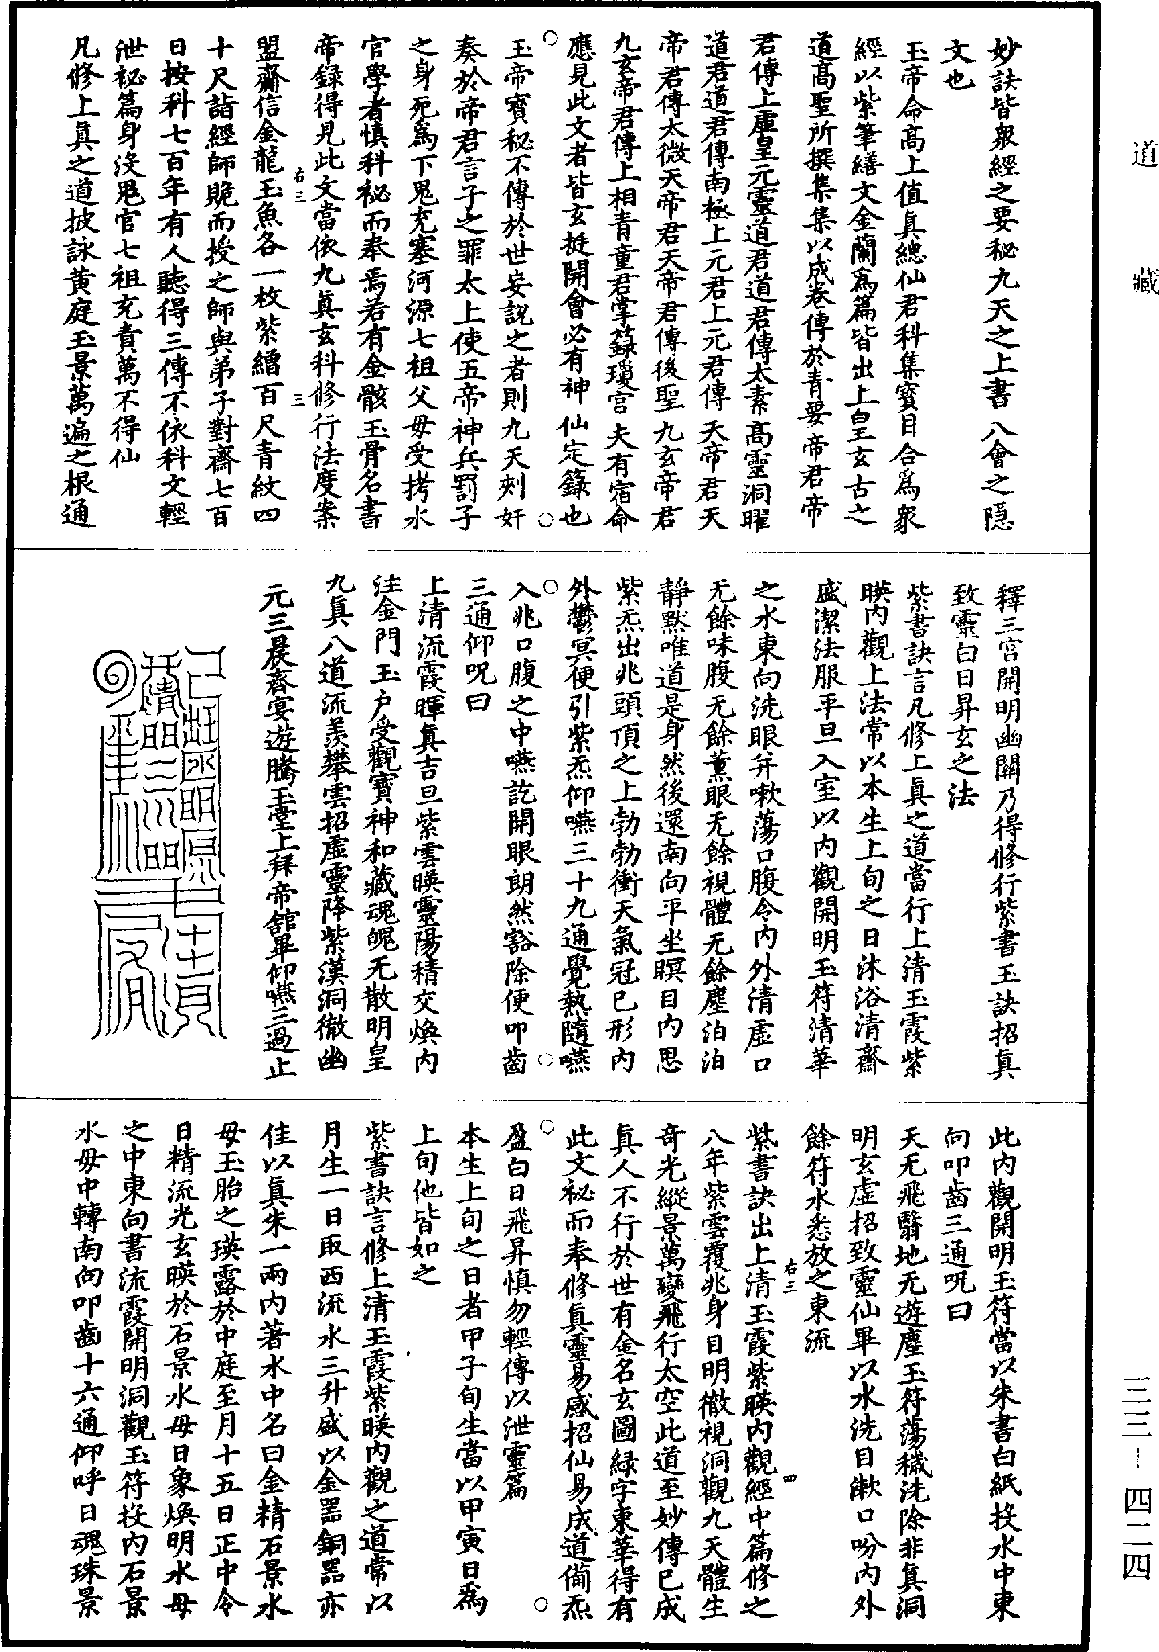 道藏
妙訣皆衆經之要秘九天之上書八會之隱
文也
玉帝命高上值真總仙君科集寶目合爲衆
經以紫筆繕文金蘭爲篇皆出上皇玄古之
道高聖所撰集集以成卷傳於青要帝君帝
君傳上虛皇元靈道君道君傳太素高靈洞曜
道君道君傳南極上元君上元君傳天帝君天
帝君傳太微天帝君天帝君傳後聖九玄帝君
九玄帝君傳上相青童君掌籙瓊宮夫有宿命
應見此文者皆玄挺開會必有神仙定籙也
玉帝寶秘不傳於世妄説之者則九天刾奸
奏於帝君言子之罪太上使五帝神兵罰子
之身死爲下鬼充塞河源七祖父母受拷水
官學者慎科秘而奉焉若有金骸玉骨名書
帝録得見此文當依九真玄科修行法度案
右三
三
盟齋信金龍玉魚各一枚紫繒百尺青紋四
十尺詣經師跪而授之師與弟子對齋七百
日按科七百年有人聽得三傳不依科文輕
泄秘篇身没鬼官七祖充責萬不得仙
凡修上真之道披詠黄庭玉景萬遍之根通
釋三宮開明幽關乃得修行紫書玉訣招真
致靈白日昇玄之法
紫書訣言凡修上真之道當行上清玉霞紫
暎内觀上法常以本生上旬之日沐浴清齋
盛潔法服平旦入室以内觀開明玉符清華
之水東向洗眼并嗽蕩口腹令内外清虛口
无餘味腹无餘薰眼无餘視體无餘塵泊泊
静默唯道是身然後還南向平坐瞑目内思
紫炁出兆頭頂之上勃勃衝天氣冠已形内
外鬱冥便引紫炁仰嚥三十九通覺熱隨嚥
入兆口腹之中嚥訖開眼朗然豁除便叩齒
三通仰呪曰
上清流霞暉真吉旦紫雲暎靈陽精交煥内
注金門玉户受觀寶神和藏魂魄无散明皇
九真八道流羨攀雲招虛靈降紫漢洞徹幽
元三晨齊宴遊騰玉堂上拜帝舘畢仰嚥三過止
此内觀開明玉符當以朱書白紙投水中東
向叩齒三通呪曰
天无飛翳地无遊塵玉符蕩穢洗除非真洞
明玄虛招致靈仙畢以水洗目漱口吩内外
餘符水悉放之東流
右三
四
紫書訣出上清玉霞紫暎内觀經中篇修之
八年紫雲覆兆身目明徹視洞觀九天體生
奇光縱景萬變飛行太空此道至妙傳已成
真人不行於世有金名玄圖緑字東華得有
此文秘而奉修真靈易感招仙易成道備炁
盈白日飛昇慎勿輕傳以泄靈篇
本生上旬之日者甲子旬生當以甲寅日爲
上旬他皆如之
紫書訣言修上清玉霞紫暎内觀之道常以
月生一日取西流水三升盛以金器銅器亦
佳以真朱一兩内著水中名曰金精石景水
母玉胎之瑛露於中庭至月十五日正中令
日精流光玄暎於石景水母日象煥明水母
之中東向書流霞開明洞觀玉符投内石景
水母中轉南向叩齒十六通仰呼日魂珠景
三三—四二四